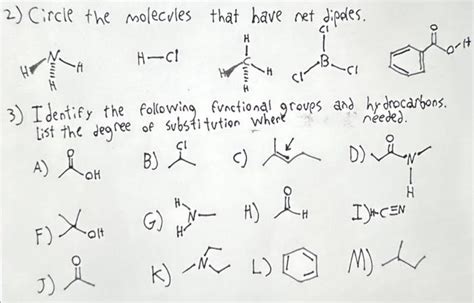 2) Circle the molecules that have net dipoles.
N H H H
H-Cl
H C H H H
Cl B Cl Cl
O O-H
3) Identify the following functional groups and hydrocarbons.
List the degree of substitution where needed.
A) O OH
B) Cl
C)
D) O N H
F) OH
G) H N H
H) O H
I) H-C≡N
J) O
K) N
L)
M)